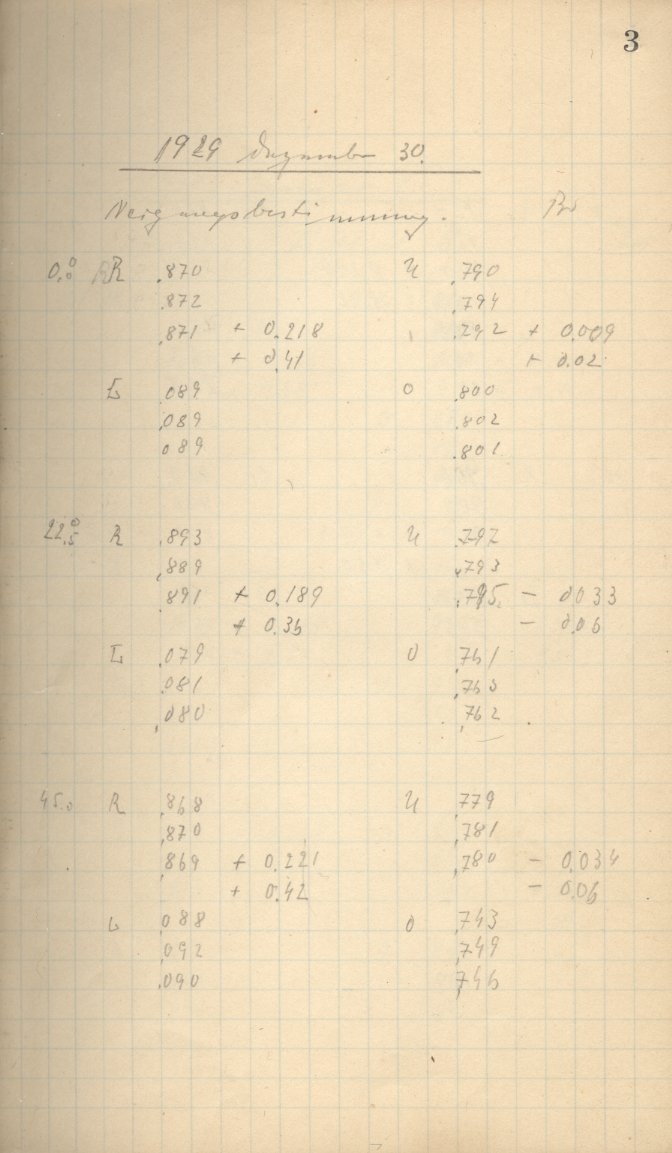 3
1929 Dezember 30.
Neigungsbestimmung. Br
0.°0 R .870 U .790
.872 .794
.871 + 0.218 .792 + 0.009
+ 0.41 + 0.02
L .089 O .800
.089 .802
089 .801
22.°5 R .893 U .797
.889 .793
.891 + 0.189 .795 - 0.033
+ 0.36 - 0.06
L .079 O .761
.081 .763
.080 .762
45.0 R .868 U .779
.870 .781
.869 + 0.221 .780 - 0.034
+ 0.42 - 0.06
L .088 O .743
.092 .749
.090 .746